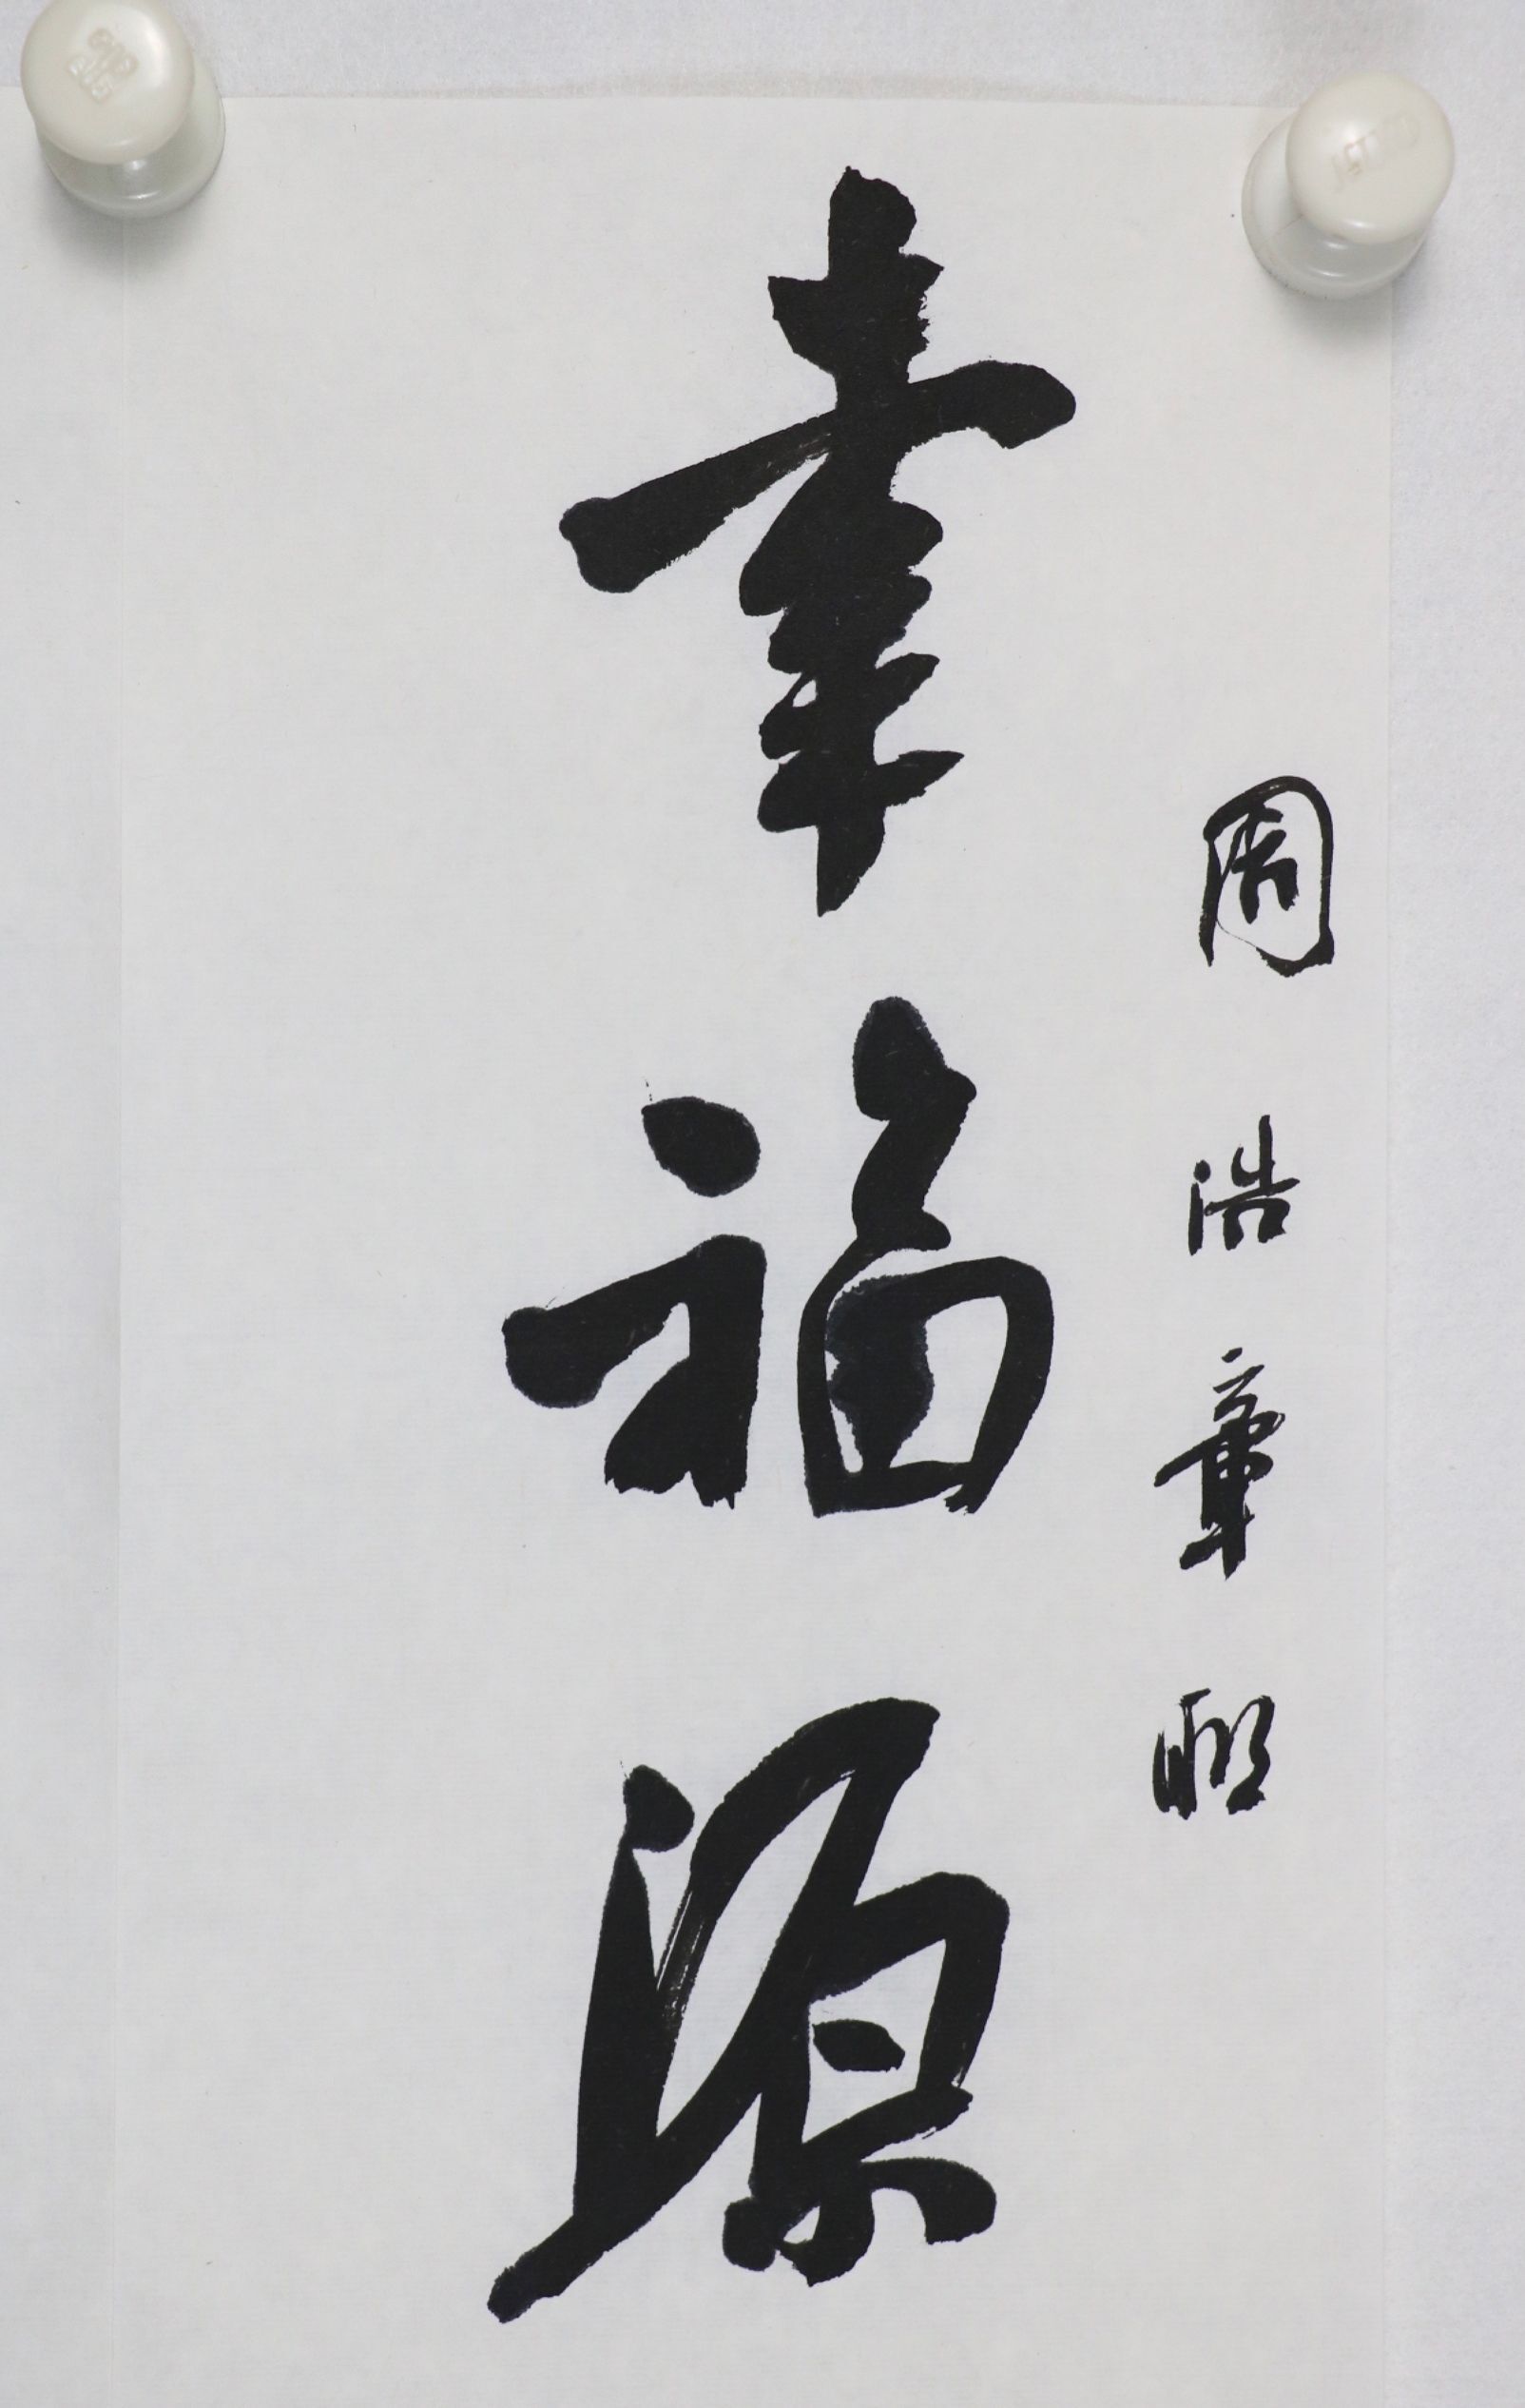 周浩章
幸福源